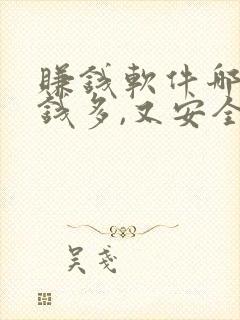 賺錢軟件哪
錢多,又安全
吴戔